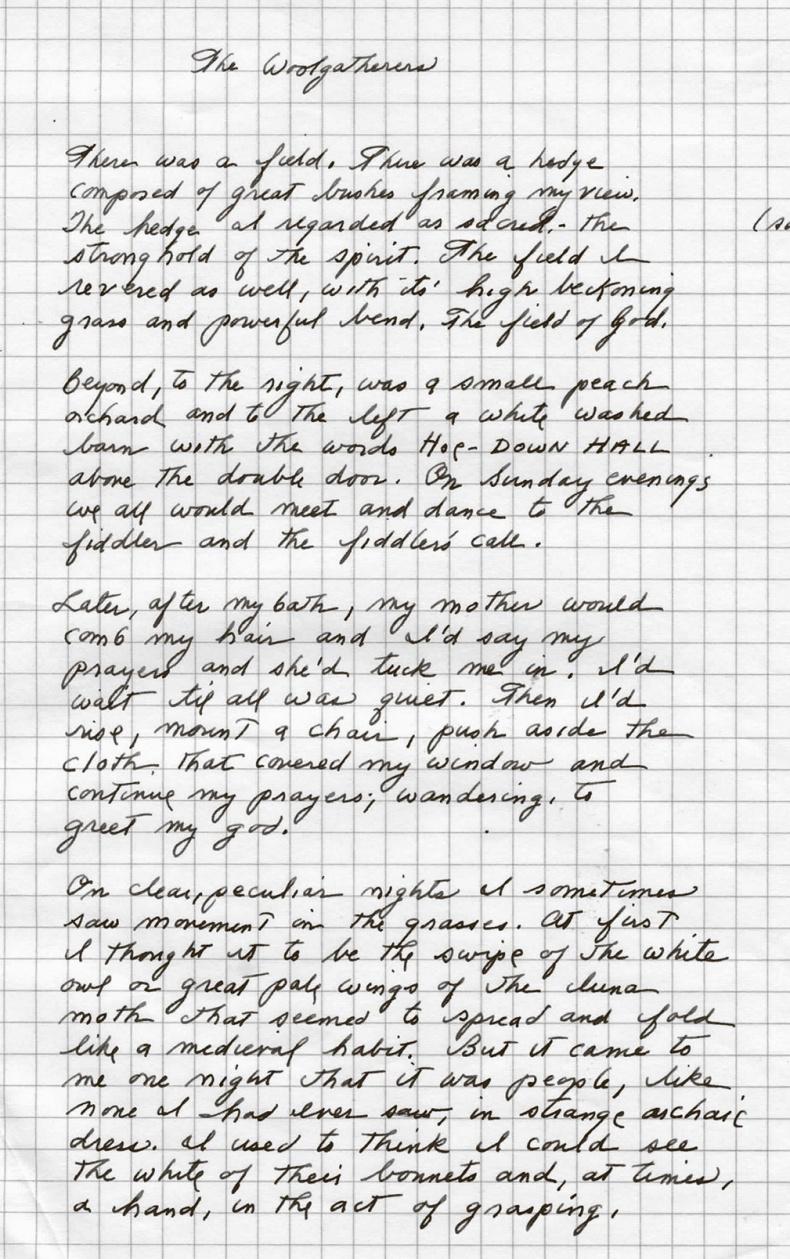 The Woolgatherers
There was a field. There was a hedge
composed of great bushes framing my view.
The hedge I regarded as sacred - the
stronghold of the spirit. The field I
revered as well, with its' high beckoning
grass and powerful bend. The field of God.
Beyond, to the right, was a small peach
orchard and to the left a white washed
barn with the words HOE-DOWN HALL
above the double door. On Sunday evenings
we all would meet and dance to the
fiddler and the fiddler's call.
Later, after my bath, my mother would
comb my hair and I'd say my
prayers and she'd tuck me in. I'd
wait til all was quiet. Then I'd
rise, mount a chair, push aside the
cloth that covered my window and
continue my prayers; wandering, to
greet my god.
On clear, peculiar nights I sometimes
saw movement in the grasses. At first
I thought it to be the swipe of the white
owl or great pale wings of the luna
moth that seemed to spread and fold
like a medieval habit. But it came to
me one night that it was people, like
none I had ever saw, in strange archaic
dress. I used to think I could see
the white of their bonnets and, at times,
a hand, in the act of grasping.